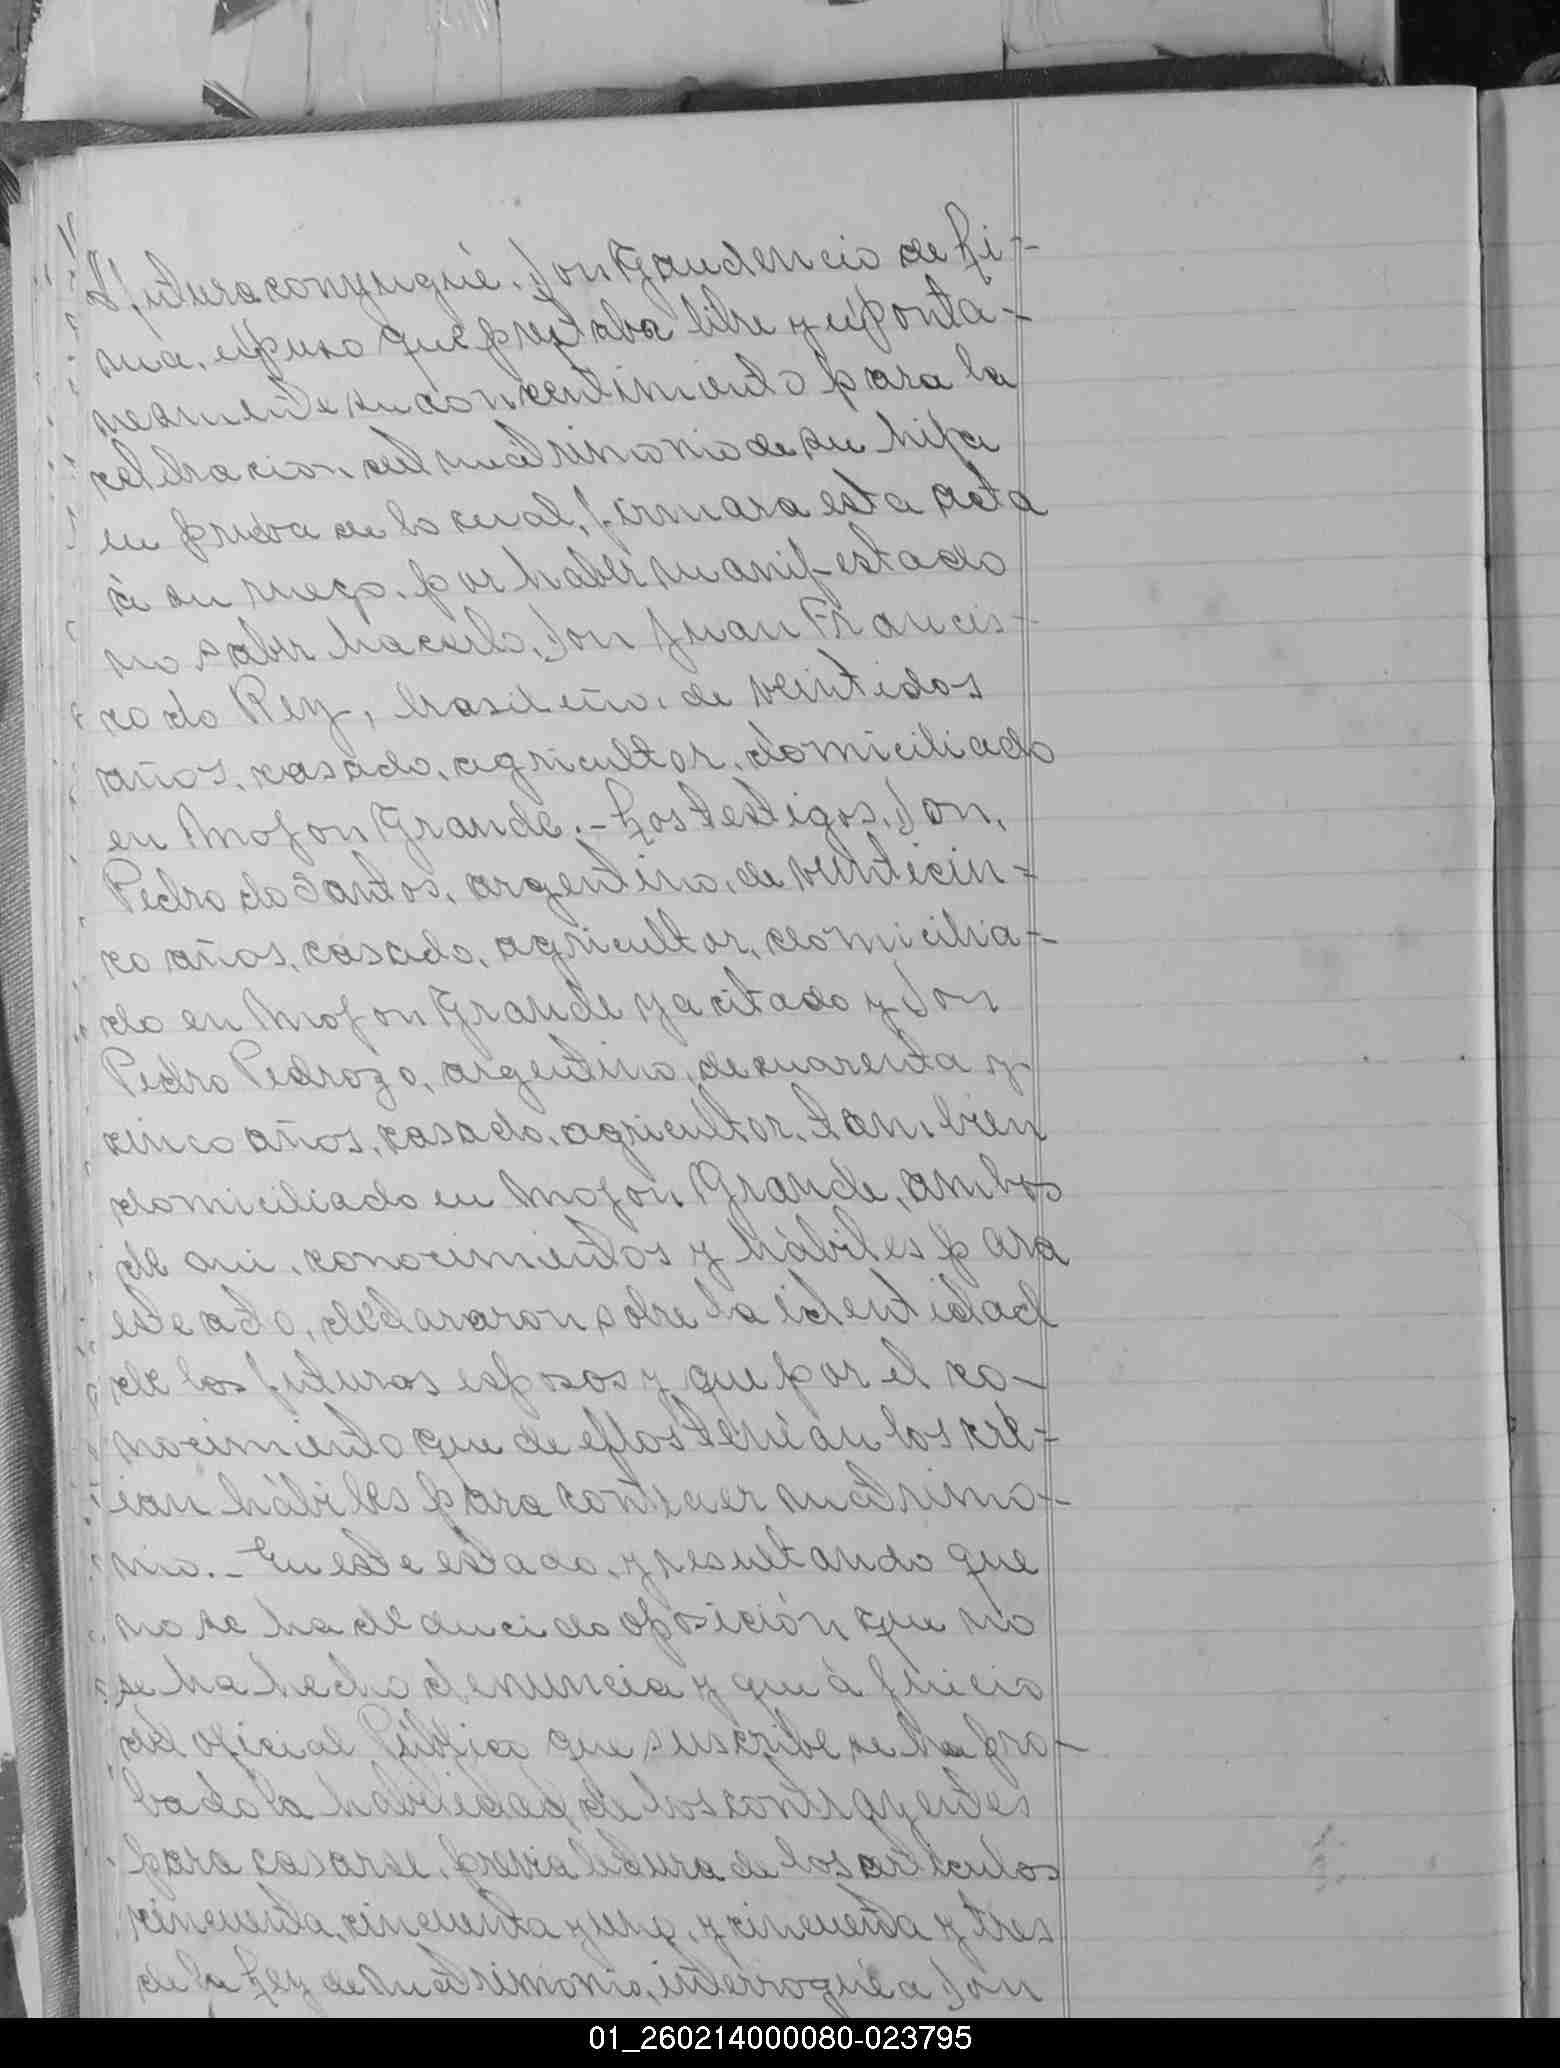 futura conyugue. Don Gaudencio de Li-
ma, expuso que prestaba libre y esponta-
neamente su consentimiento para la
celebracion del matrimonio de su hija
en prueba de lo cual, firmara esta acta
á su ruego, por haber manifestado
no saber hacerlo, Don Juan Francis-
co do Rey, brasileño, de veintidos
años, casado, agricultor, domiciliado
en Mojon Grande.- Los testigos, Don,
Pedro do Santos, argentino, de veinticin-
co años, casado, agricultor, domicilia-
do en Mojon Grande ya citado y Don
Pedro Pedrozo, argentino, de cuarenta y
cinco años, casado, agricultor, tambien
domiciliado en Mojon Grande, ambos
de mi conocimientos y hábiles para
este acto, declararon sobre la identidad
de los futuros esposos y que por el co-
nocimiento que de ellos tenian los cre-
ian hábiles para contraer matrimo-
nio.- En este estado, y resultando que
no se ha deducido oposición que no
se ha hecho denuncia y que á juicio
del oficial Público que suscribe se ha pro-
bado la habilidad de los contrayentes
para casarse, previa lectura de los articulos
cincuenta, cincuenta y uno, y cincuenta y tres
de la Ley de matrimonio, interrogué a Don
01_260214000080-023795